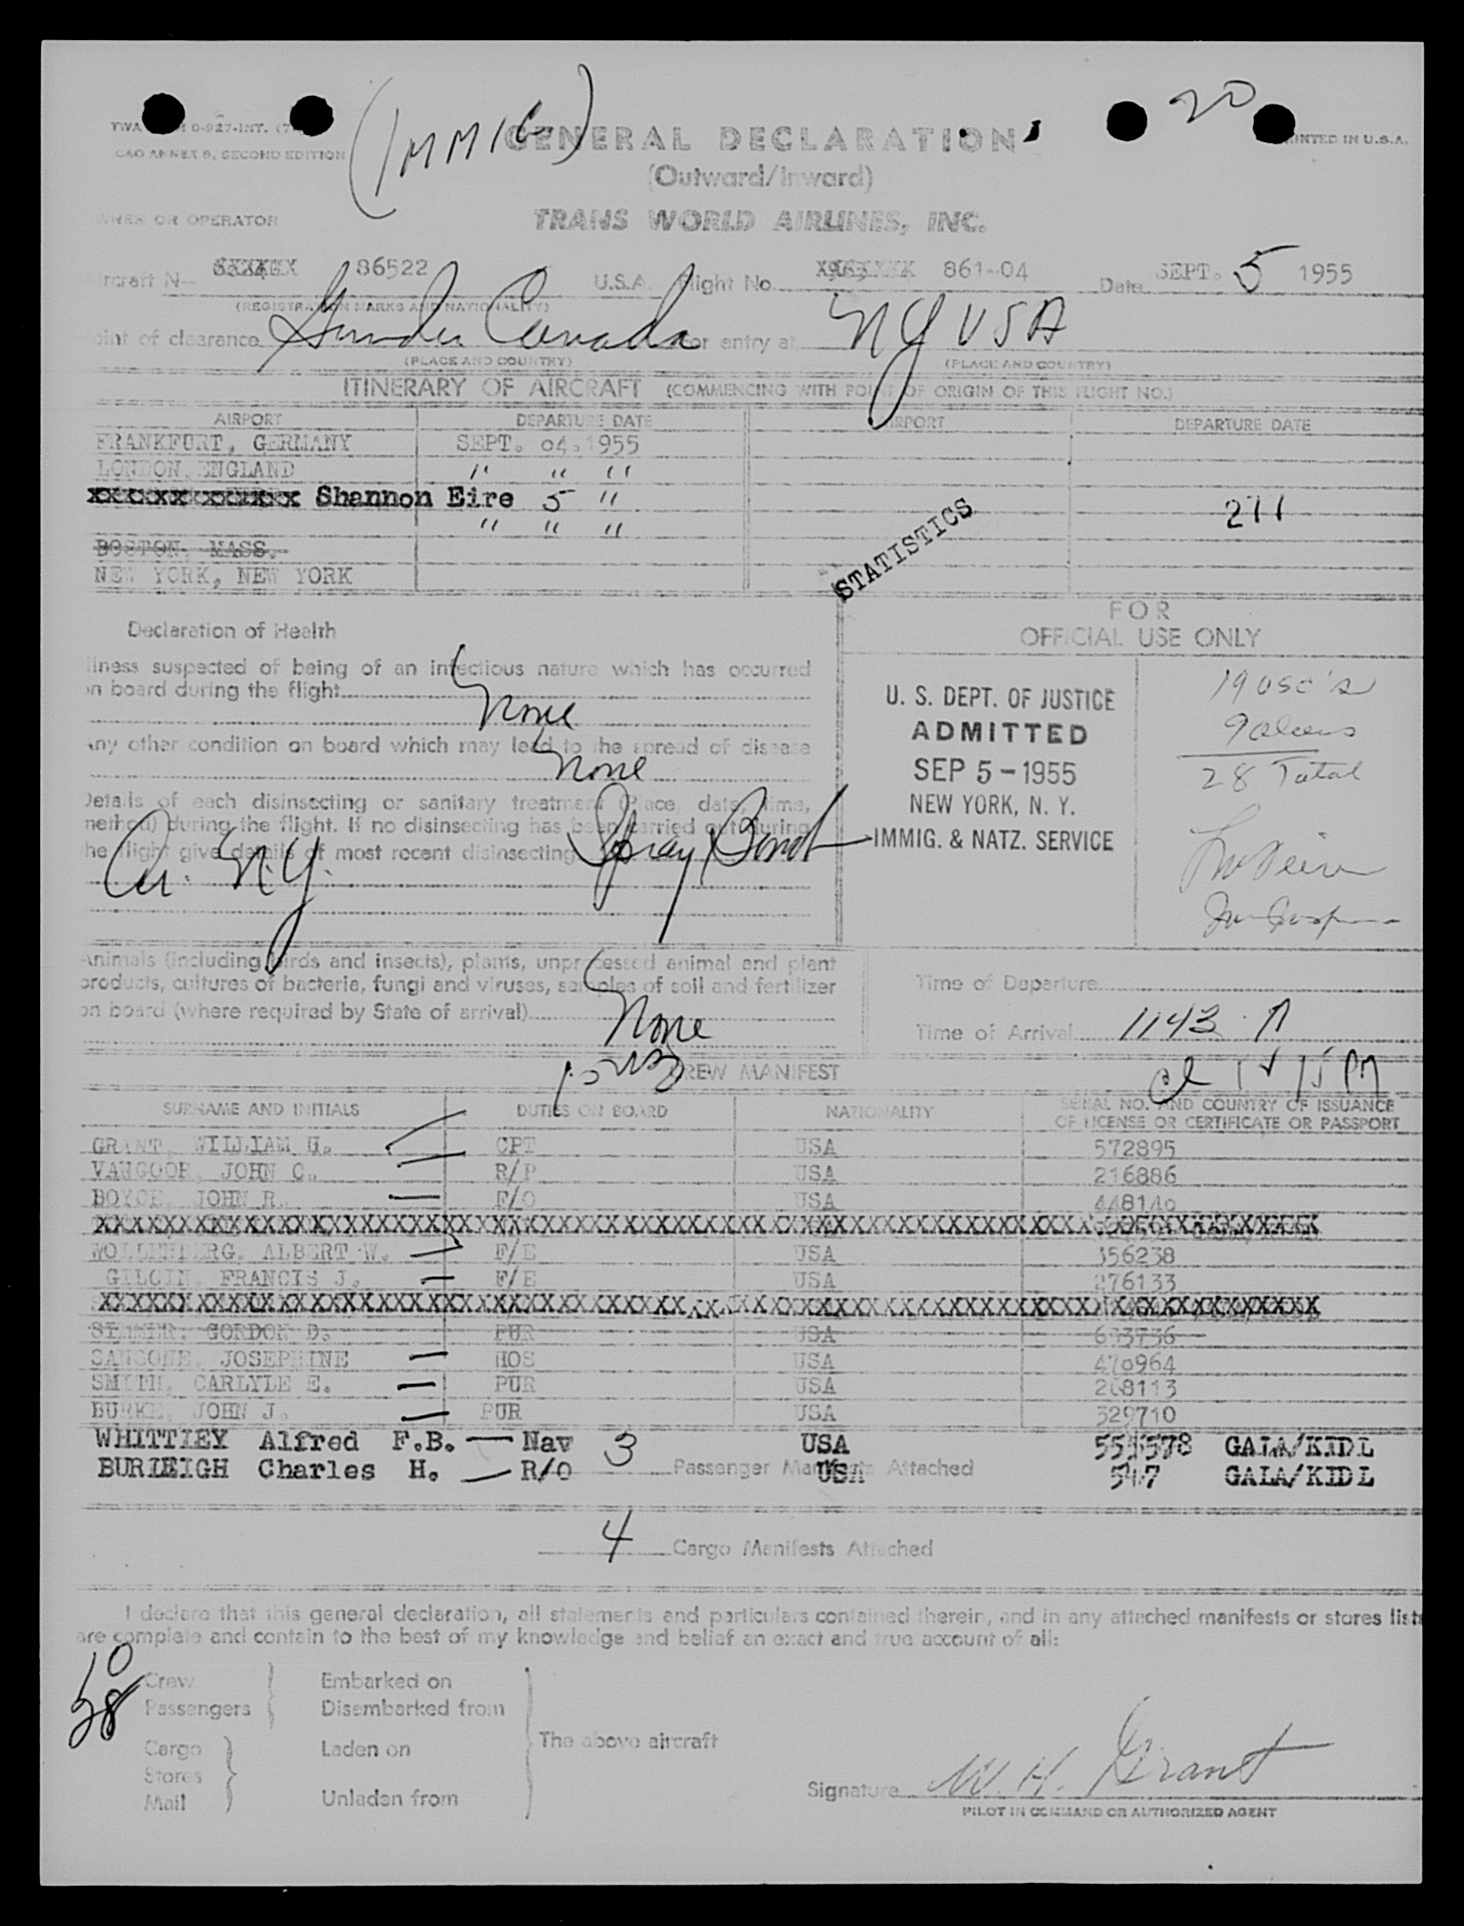 20
(IMMIG)
GENERAL DECLARATION
CAO ANNEX 9, SECOND EDITION
PRINTED IN U.S.A.
(Outward/Inward)
OWNER OR OPERATOR TRANS WORLD AIRLINES, INC.
Aircraft N- 86522 U.S.A. Flight No. 861-04 Date SEPT. 5 1955
(REGISTRATION MARKS AND NATIONALITY)
Point of clearance Gander Canada For entry at NY USA
(PLACE AND COUNTRY) (PLACE AND COUNTRY)
ITINERARY OF AIRCRAFT (COMMENCING WITH POINT OF ORIGIN OF THIS FLIGHT NO.)
AIRPORT DEPARTURE DATE AIRPORT DEPARTURE DATE
FRANKFURT, GERMANY SEPT. 04, 1955
LONDON, ENGLAND " " "
XXXXXXXXXXXXX Shannon Eire 5 " 211
" " "
BOSTON, MASS.
NEW YORK, NEW YORK
STATISTICS
FOR
OFFICIAL USE ONLY
Declaration of Health
Illness suspected of being of an infectious nature which has occurred
on board during the flight
None
Any other condition on board which may lead to the spread of disease
None
Details of each disinsecting or sanitary treatment (Place, date, time,
method) during the flight. If no disinsecting has been carried out during
the flight give details of most recent disinsecting Spray Bomb
Ar. N.Y.
U. S. DEPT. OF JUSTICE
ADMITTED
SEP 5 - 1955
NEW YORK, N. Y.
IMMIG. & NATZ. SERVICE
19 USC's
9 aliens
28 Total
Animals (including birds and insects), plants, unprocessed animal and plant
products, cultures of bacteria, fungi and viruses, samples of soil and fertilizer
on board (where required by State of arrival)
None
Time of Departure
Time of Arrival 1143 A
CREW MANIFEST
SURNAME AND INITIALS DUTIES ON BOARD NATIONALITY SERIAL NO. AND COUNTRY OF ISSUANCE
OF LICENSE OR CERTIFICATE OR PASSPORT
GRANT, WILLIAM H. CPT USA 572895
JOHN C. R/P USA 216886
BOYCE, JOHN R. F/O USA 448140
WOLLENBERG, ALBERT W. F/E USA 356238
FRANCIS J. F/E USA 276133
GORDON D. PUR USA 633736
SANSONE, JOSEPHINE HOS USA 470964
SMITH, CARLYLE E. PUR USA 268113
BURKE, JOHN J. PUR USA 329710
WHITTIEY Alfred F.B. Nav USA GALA/KIDL
BURLEIGH Charles H. R/O USA 547 GALA/KIDL
3 Passenger Manifests Attached
4 Cargo Manifests Attached
I declare that this general declaration, all statements and particulars contained therein, and in any attached manifests or stores lists
are complete and contain to the best of my knowledge and belief an exact and true account of all:
10 Crew Embarked on
28 Passengers Disembarked from
The above aircraft
Cargo Laden on
Stores
Mail Unladen from
Signature W. H. Grant
PILOT IN COMMAND OR AUTHORIZED AGENT